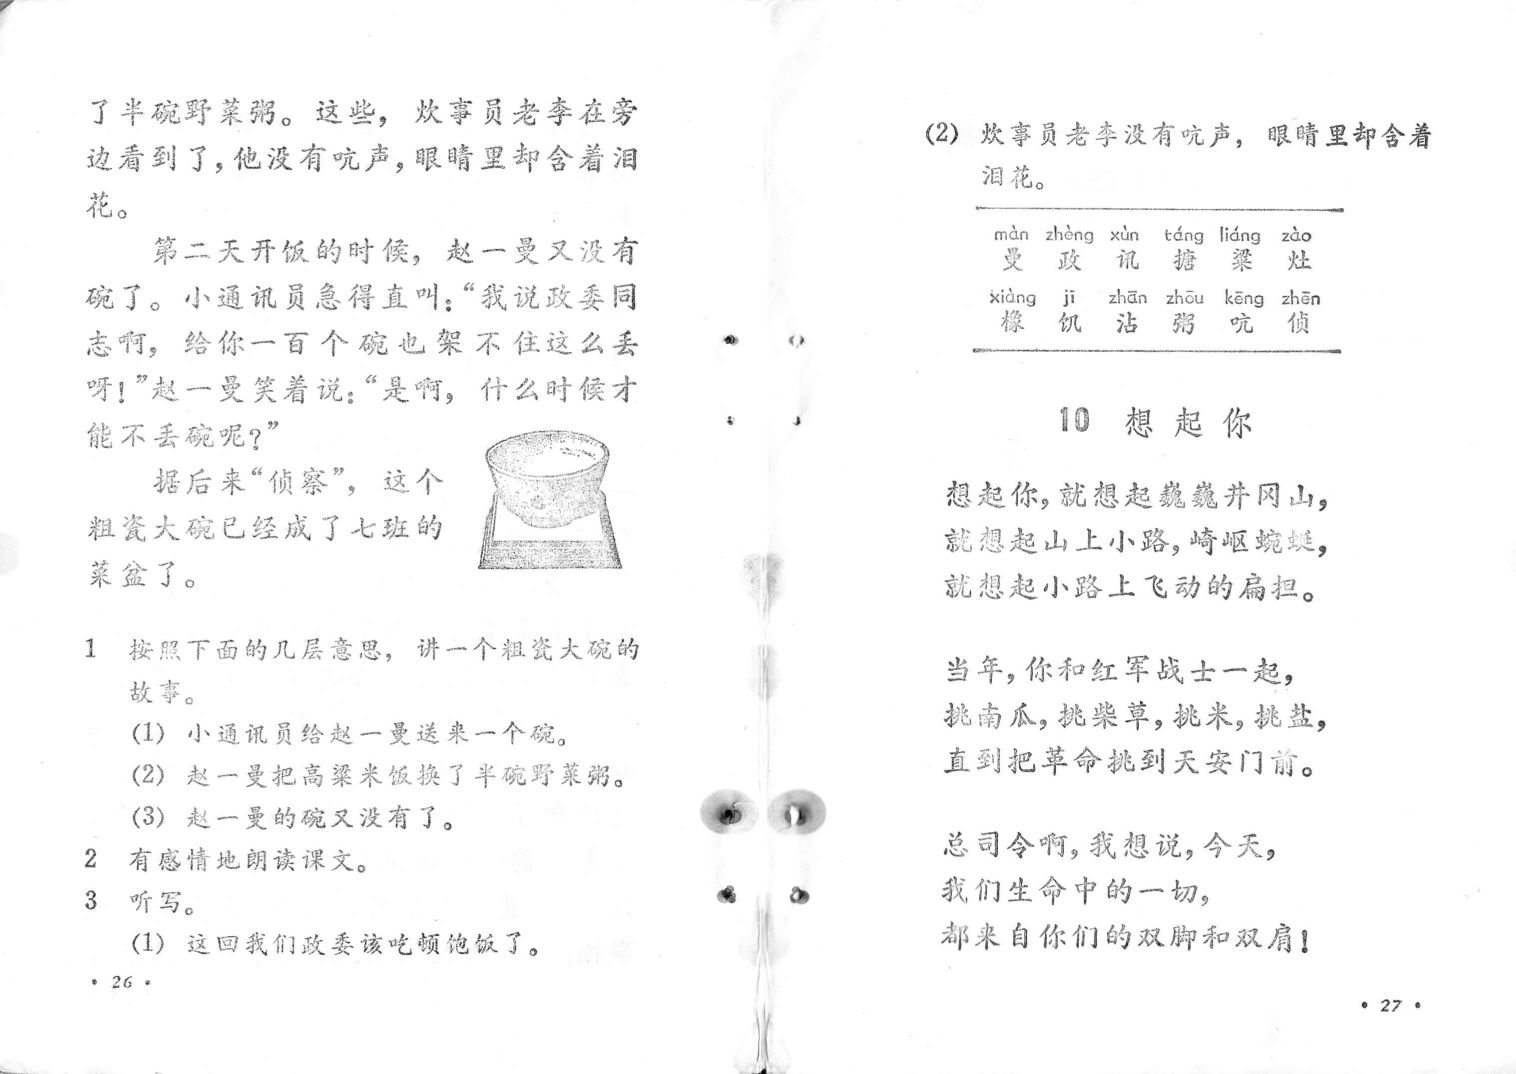 了半碗野菜粥。这些，炊事员老李在旁
边看到了，他没有吭声，眼睛里却含着泪
花。
第二天开饭的时候，赵一曼又没有
碗了。小通讯员急得直叫：“我说政委同
志啊，给你一百个碗也架不住这么丢
呀！”赵一曼笑着说：“是啊，什么时候才
能不丢碗呢？”
据后来“侦察”，这个
粗瓷大碗已经成了七班的
菜盆了。
1 按照下面的几层意思，讲一个粗瓷大碗的
故事。
(1) 小通讯员给赵一曼送来一个碗。
(2) 赵一曼把高粱米饭换了半碗野菜粥。
(3) 赵一曼的碗又没有了。
2 有感情地朗读课文。
3 听写。
(1) 这回我们政委该吃顿饱饭了。
·26·
(2) 炊事员老李没有吭声，眼睛里却含着
泪花。
màn zhèng xùn táng liáng zào
曼 政 讯 搪 梁 灶
xiàng jī zhān zhōu kēng zhēn
橡 饥 沾 粥 吭 侦
10 想起你
想起你，就想起巍巍井冈山，
就想起山上小路，崎岖蜿蜒，
就想起小路上飞动的扁担。
当年，你和红军战士一起，
挑南瓜，挑柴草，挑米，挑盐，
直到把革命挑到天安门前。
总司令啊，我想说，今天，
我们生命中的一切，
都来自你们的双脚和双肩！
·27·